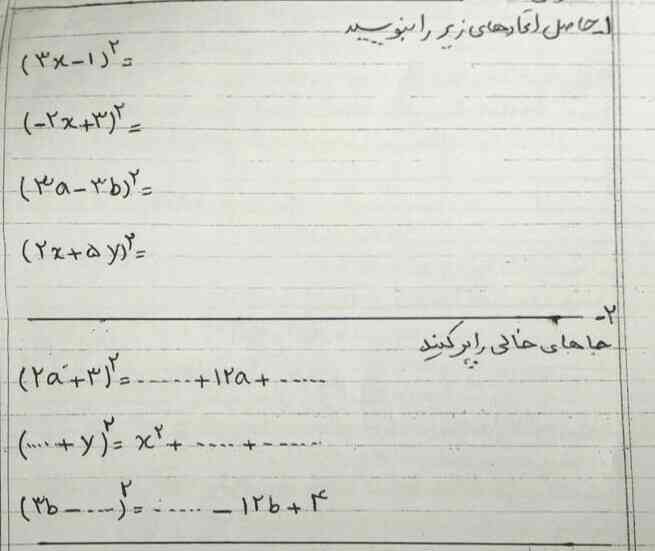 ۱ـ حاصل اتحادهای زیر را بنویسید
(۳x-۱)^۲=
(-۲x+۳)^۲=
(۳a-۳b)^۲=
(۲x+۵y)^۲=
۲-
جاهای خالی را پر کنید
(۲a+۳)^۲= ......+۱۲a+ ......
(....+y)^۲= x^۲+ .....+ ......
(۳b-....)^۲= ......-۱۲b+۴